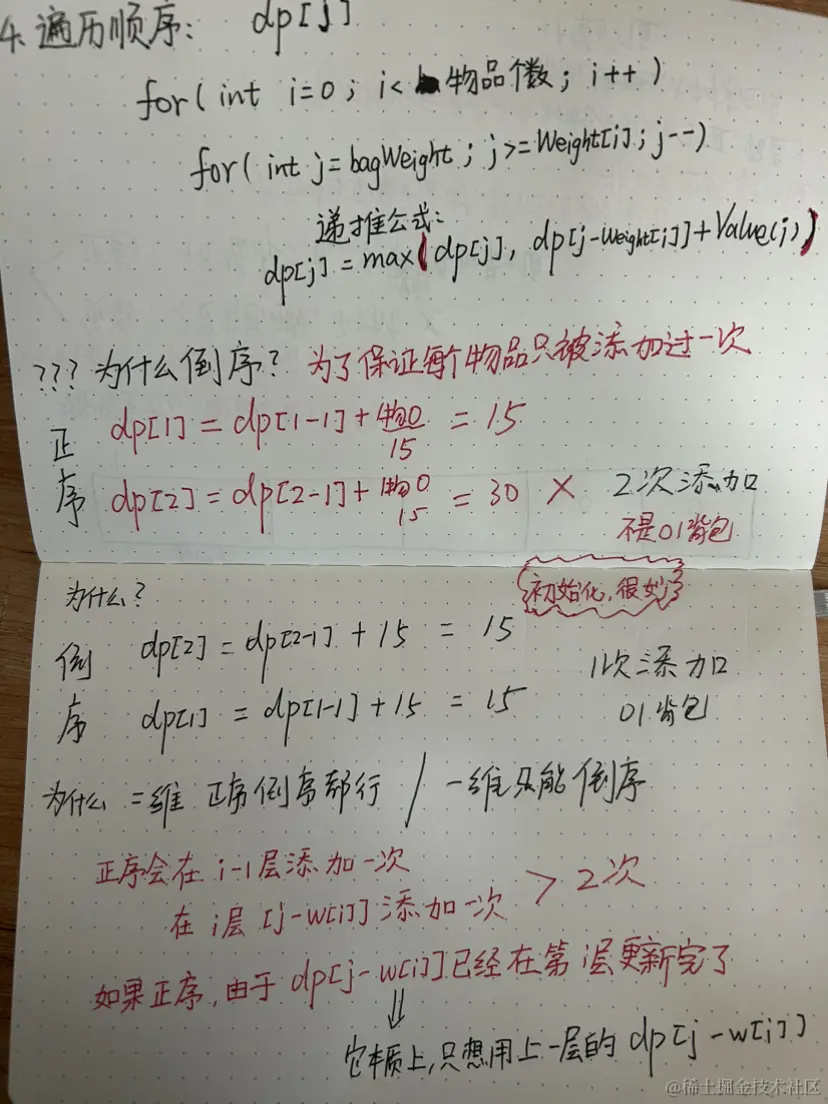 4. 遍历顺序: dp[j]
for( int i=0; i< 物品个数; i++ )
for( int j=bagWeight; j>=Weight[i]; j--)
递推公式:
dp[j] = max( dp[j], dp[j-Weight[i]]+Value(i) )
??? 为什么倒序? 为了保证每个物品只被添加过一次
正序
dp[1] = dp[1-1] + 物0/15 = 15
dp[2] = dp[2-1] + 物0/15 = 30 × 2次添加
不是01背包
为什么?
初始化,很妙
倒序
dp[2] = dp[2-1] + 15 = 15
1次添加
dp[1] = dp[1-1] + 15 = 15
01背包
为什么 二维 正序倒序都行 / 一维只能倒序
正序会在 i-1层添加一次
在 i层 [j-w[i]] 添加一次 > 2次
如果正序,由于 dp[j-w[i]]已经在第i层更新完了
⇓
它本质上,只想用上一层的 dp[j-w[i]]
@稀土掘金技术社区